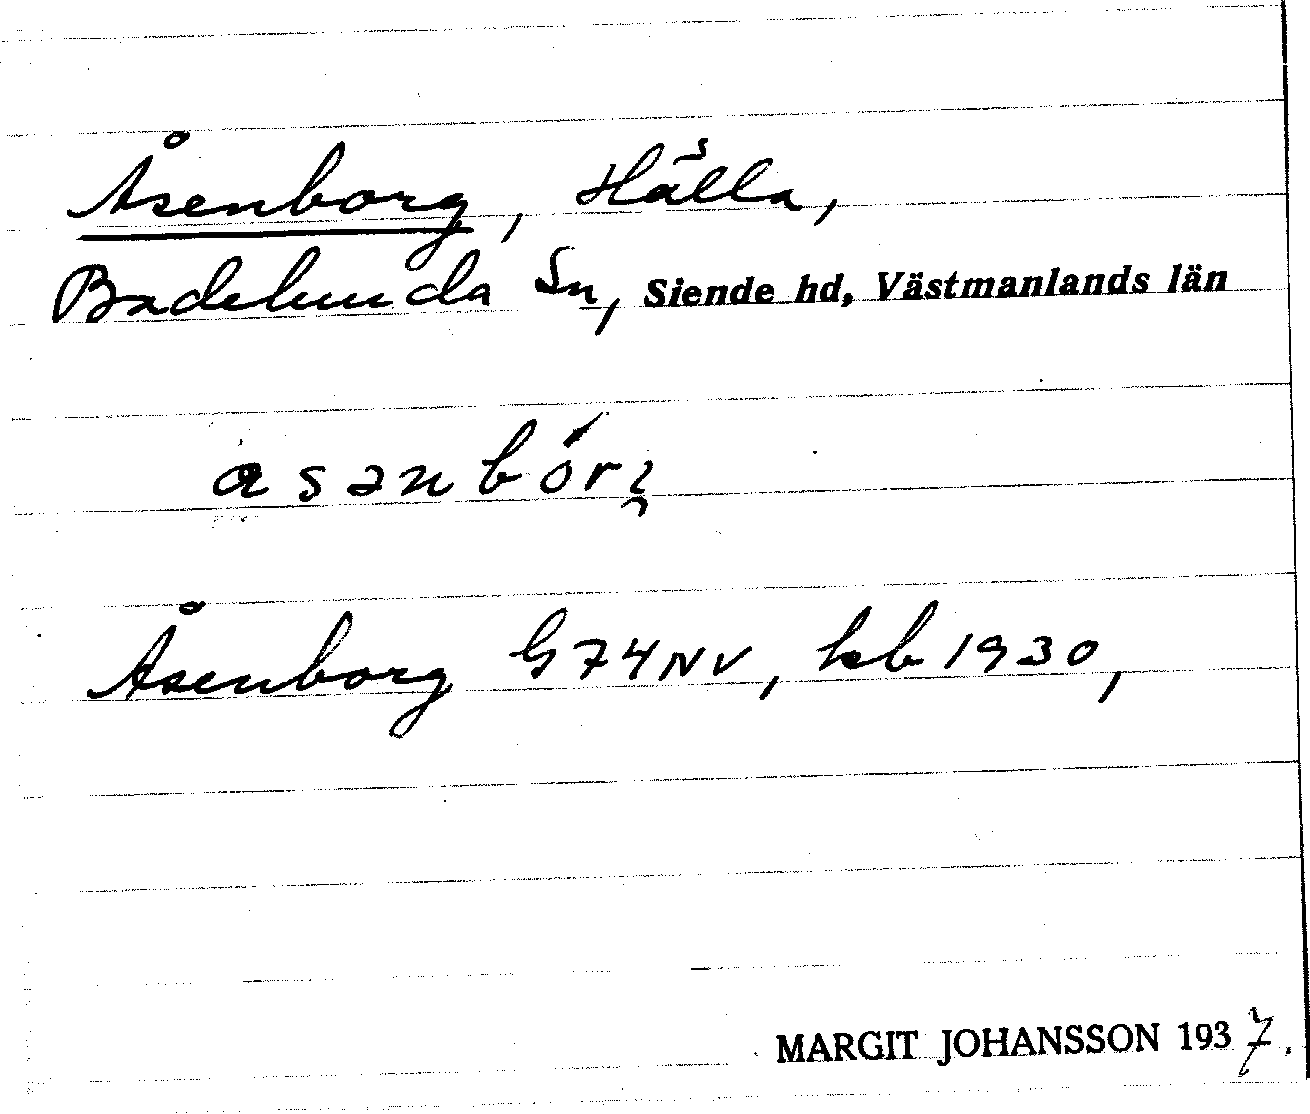 Åsenborg, Hälla,
Badelunda Sn, Siende hd, Västmanlands län
Åsenborg G74NV, kb 1930,
MARGIT JOHANSSON 1937.